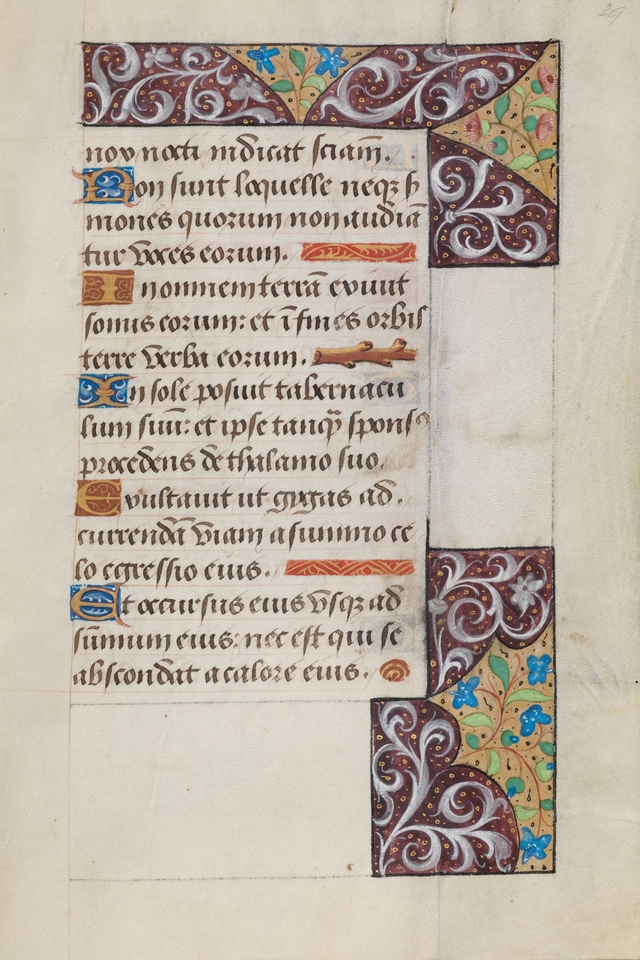 29
nox nocti indicat sciam̄.
Non sunt loquelle neqʒ ẜ
mones quorum non audiā
tur voces eorum.
In omnem terrā exiuit
sonus eorum: et ī fines orbis
terre verba eorum.
In sole posuit tabernacu
lum suū: et ipse tanqꝫ spons⁹
procedens de thalamo suo.
Exultauit ut gygas ad
currendā viam a summo ce
lo egressio eius.
Et occursus eius vsqʒ ad
summum eius: nec est qui se
abscondat a calore eius.